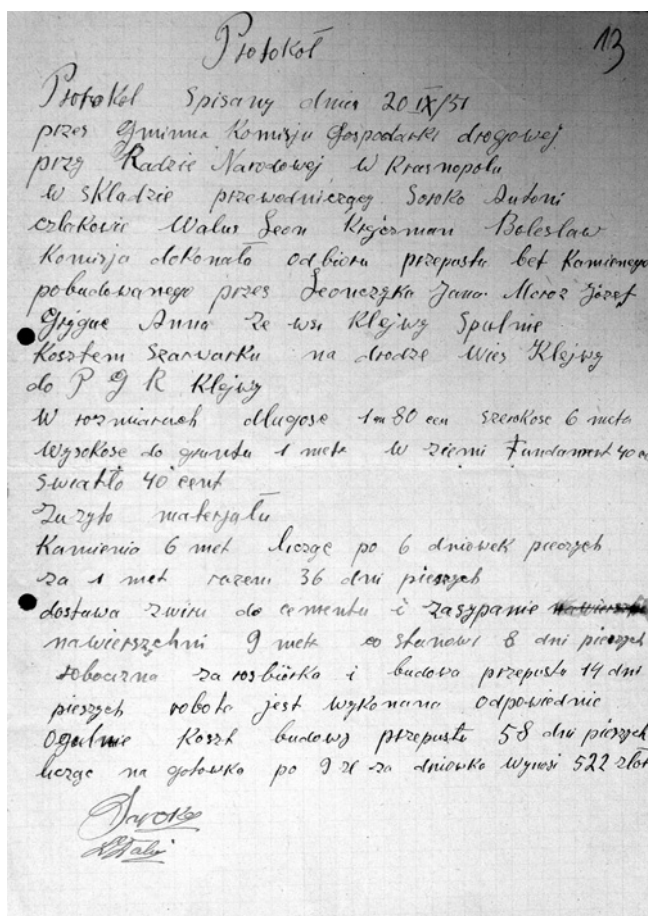 Protokoł 13
Protokoł Spisany dnia 20 IX/51
przez Gminna Komisju Gospodarki drogowej
przy Radzie Narodowej w Krasnopolu
w składzie przewodniczący Soroko Antoni
członkowie Walus Leon Bolesław
Komisja dokonało odbioru przepustu bet Kamienego
pobudowanego przez Leonczyka Jana Moroz Józef
Gryguc Anna ze wsi Klejwy Spulnie
Kosztem Szarwarku na drodze wies Klejwy
do P G R Klejwy
w rozmiarach długosc 1 m 80 cen szerokosc 6 mets
wysokosc do gruntu 1 metr w ziemi Fundament 40 ce
swiatło 40 cent
Zuzyto materjału
Kamienia 6 met licząc po 6 dniowek pieszych
za 1 met razem 36 dni pieszych
dostawa zwiru do cementu i zasypanie
nawierszchni 9 metr co stanowi 8 dni pieszych
robocizna za rosbiórka i budowa przepustu 14 dni
pieszych robota jest wykonana odpowiednie
Ogulnie Koszt budowy przepustu 58 dni pieszych
licząc na gotowko po 9 zł za dniowka wynosi 522 złot
Soroko